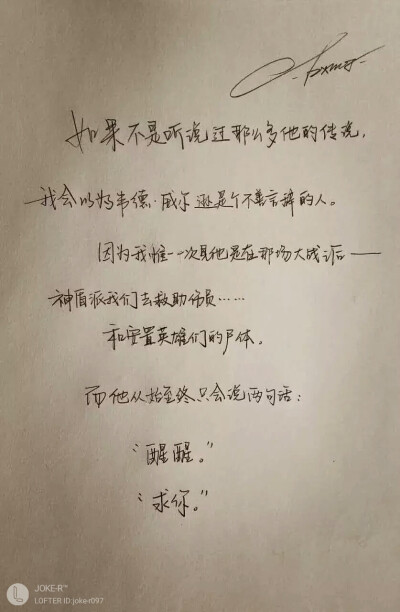 如果不是听说过那么多他的传说，
我会以为韦德·威尔逊是个不善言辞的人。
因为我惟一一次见他是在那场大战后——
神盾派我们去救助伤员……
和安置英雄们的尸体。
而他从始至终只会说两句话：
“醒醒。”
“求你。”
JOKE-R™
LOFTER ID:joke-r097